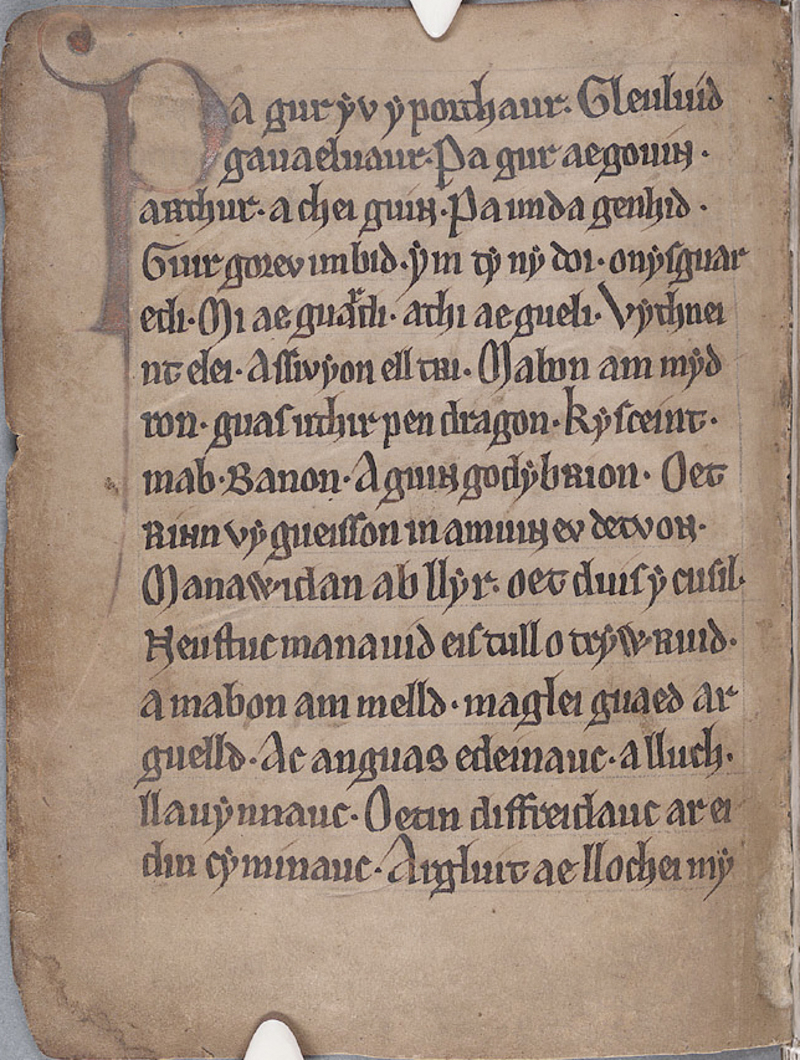 Pa gur yv y porthaur. Gleuluid
gauaeluaur. Pa gur ae gouin.
arthur. a chei guin. Pa imda genhid.
Guir gorev im bid. ym ty ny doi. onysguar
edi. Mi ae guardi. athi ae gueli. Vythnei
nt elei. Assivyon ell tri. Mabon am myd
ron. guas uthir pen dragon. kysceint.
mab. Banon. A guin godybrion. Oet
rinn vy gueisson in amuin ev detvon.
Manawidan ab llyr. oet duis y cusil.
Neustuc manauid eis tull o trywruid.
a mabon am melld. maglei guaed ar
guelld. Ac anguas edeinauc. a lluch.
llauynnauc. Oetin diffreidauc ar ei
din cyminauc. Argluit ae llochei my